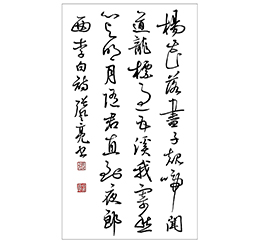 楊花落盡子規啼聞
道龍標過五溪我寄愁
心与明月隨君直到夜郎
西李白詩亮書